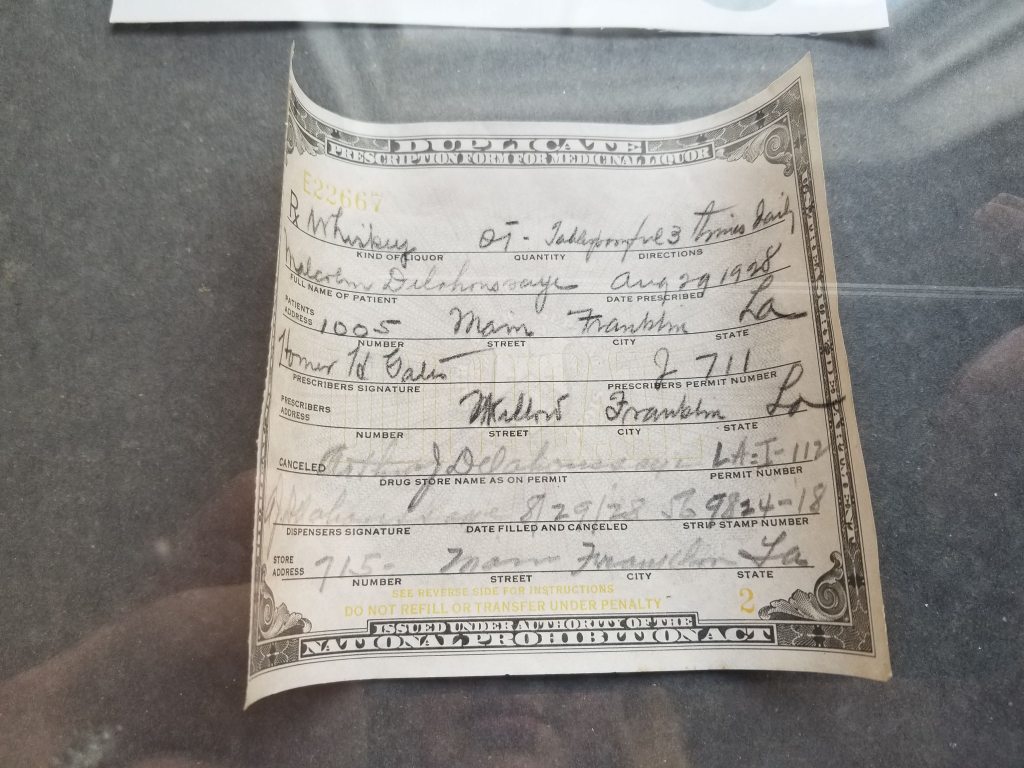 DUPLICATE
PRESCRIPTION FORM FOR MEDICINAL LIQUOR
E22667
Rx Whiskey QT - Tablespoonful 3 times daily
KIND OF LIQUOR QUANTITY DIRECTIONS
Malcolm Delahoussaye Aug 29 1928
FULL NAME OF PATIENT DATE PRESCRIBED
PATIENTS ADDRESS 1005 Main Franklin La
NUMBER STREET CITY STATE
Homer H J 711
PRESCRIBERS SIGNATURE PRESCRIBERS PERMIT NUMBER
PRESCRIBERS ADDRESS Willow Franklin La
NUMBER STREET CITY STATE
CANCELED Delahoussaye LA-I-112
DRUG STORE NAME AS ON PERMIT PERMIT NUMBER
8/29/28 9824-18
DISPENSERS SIGNATURE DATE FILLED AND CANCELED STRIP STAMP NUMBER
STORE ADDRESS 715- Main Franklin La
NUMBER STREET CITY STATE
SEE REVERSE SIDE FOR INSTRUCTIONS
DO NOT REFILL OR TRANSFER UNDER PENALTY 2
ISSUED UNDER AUTHORITY OF THE
NATIONAL PROHIBITION ACT